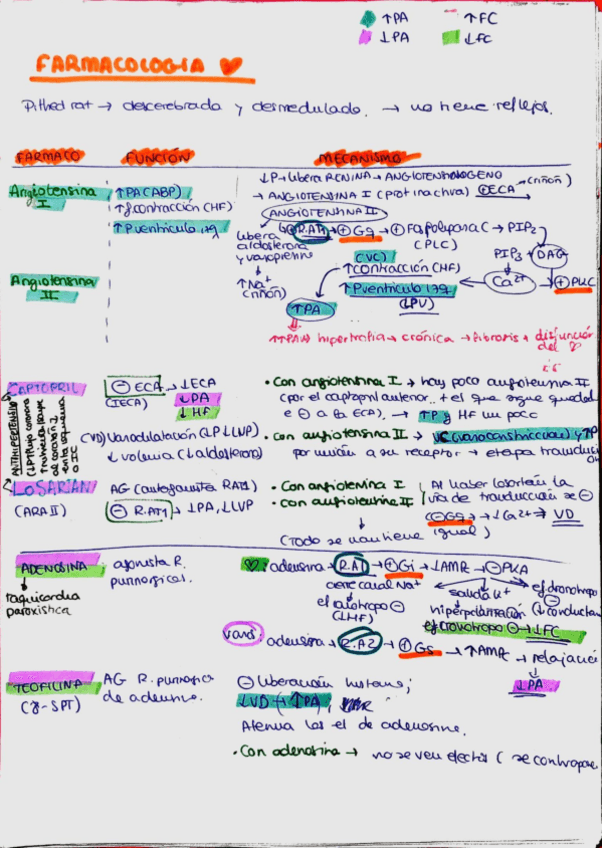 ↑PA ↑FC
↓PA ↓FC
FARMACOLOGIA
Pithed rat → descerebrada y desmedulado. → no tiene reflejos.
FARMACO FUNCIÓN MECANISMO
↓P → libera RENINA → ANGIOTENSINOGENO
Angiotensina I ↑PA (ABP) → ANGIOTENSINA I (prot inactiva) +ECA (riñón)
↑f.contracción (HF) ANGIOTENSINA II
↑P.ventrículo izq libera aldosterona y vasopresina R.AT1 → + Gq → + Fosfolipasa C → PIP2
(PLC)
PIP3 DAG
↑Na+ (riñón)
(VC)
↑contracción (HF) Ca2+ → + PKC
Angiotensina II ↑P.ventrículo izq
↑PA (LPV)
↑↑PA → hipertrofia → crónica → fibrosis → disfunción del
CAPTOPRIL (−) ECA → ↓ECA • Con angiotensina I → hay poco angiotensina II
(IECA) ↓PA (por el captopril anterior.. + el que sigue quedando
↓HF e (−) a la ECA) → ↑P y HF un poco
ANTIHIPERTENSIVO
(VD) vasodilatación (↓P ↓LVP) • Con angiotensina II → VC (vasoconstricción) y ↑P
↓ volemia (↓aldosterona) por unión a su receptor → etapa transducción
LOSARTAN AG (antagonista RAT1) • Con angiotensina I Al haber losartán la
(ARA II) (−) R.AT1 → ↓PA, ↓LVP • Con angiotensina II vía de transducción se (−)
(−) Gq → ↓Ca2+ ⇒ VD
(Todo se mantiene igual)
ADENOSINA agonista R. purinérgicos. adenosina → R.A1 → + Gi → ↓AMPc → (−) PKA
taquicardia paroxística cierre canal Na+ salida K+ ef dromotropo (−)
ef inotropo (−) hiperpolarización (↓conducción
(↓HF) ef cronotropo (−) → ↓FC
vasos: adenosina → R.A2 → + Gs → ↑AMPc → relajación
↓PA
TEOFILINA AG R. purinérgico de adenosina. (−) liberación histam;
(8-SPT) ↓VD → ↑PA
Atenua los ef de adenosina.
• Con adenosina → no se ven efectos ( se contrapone